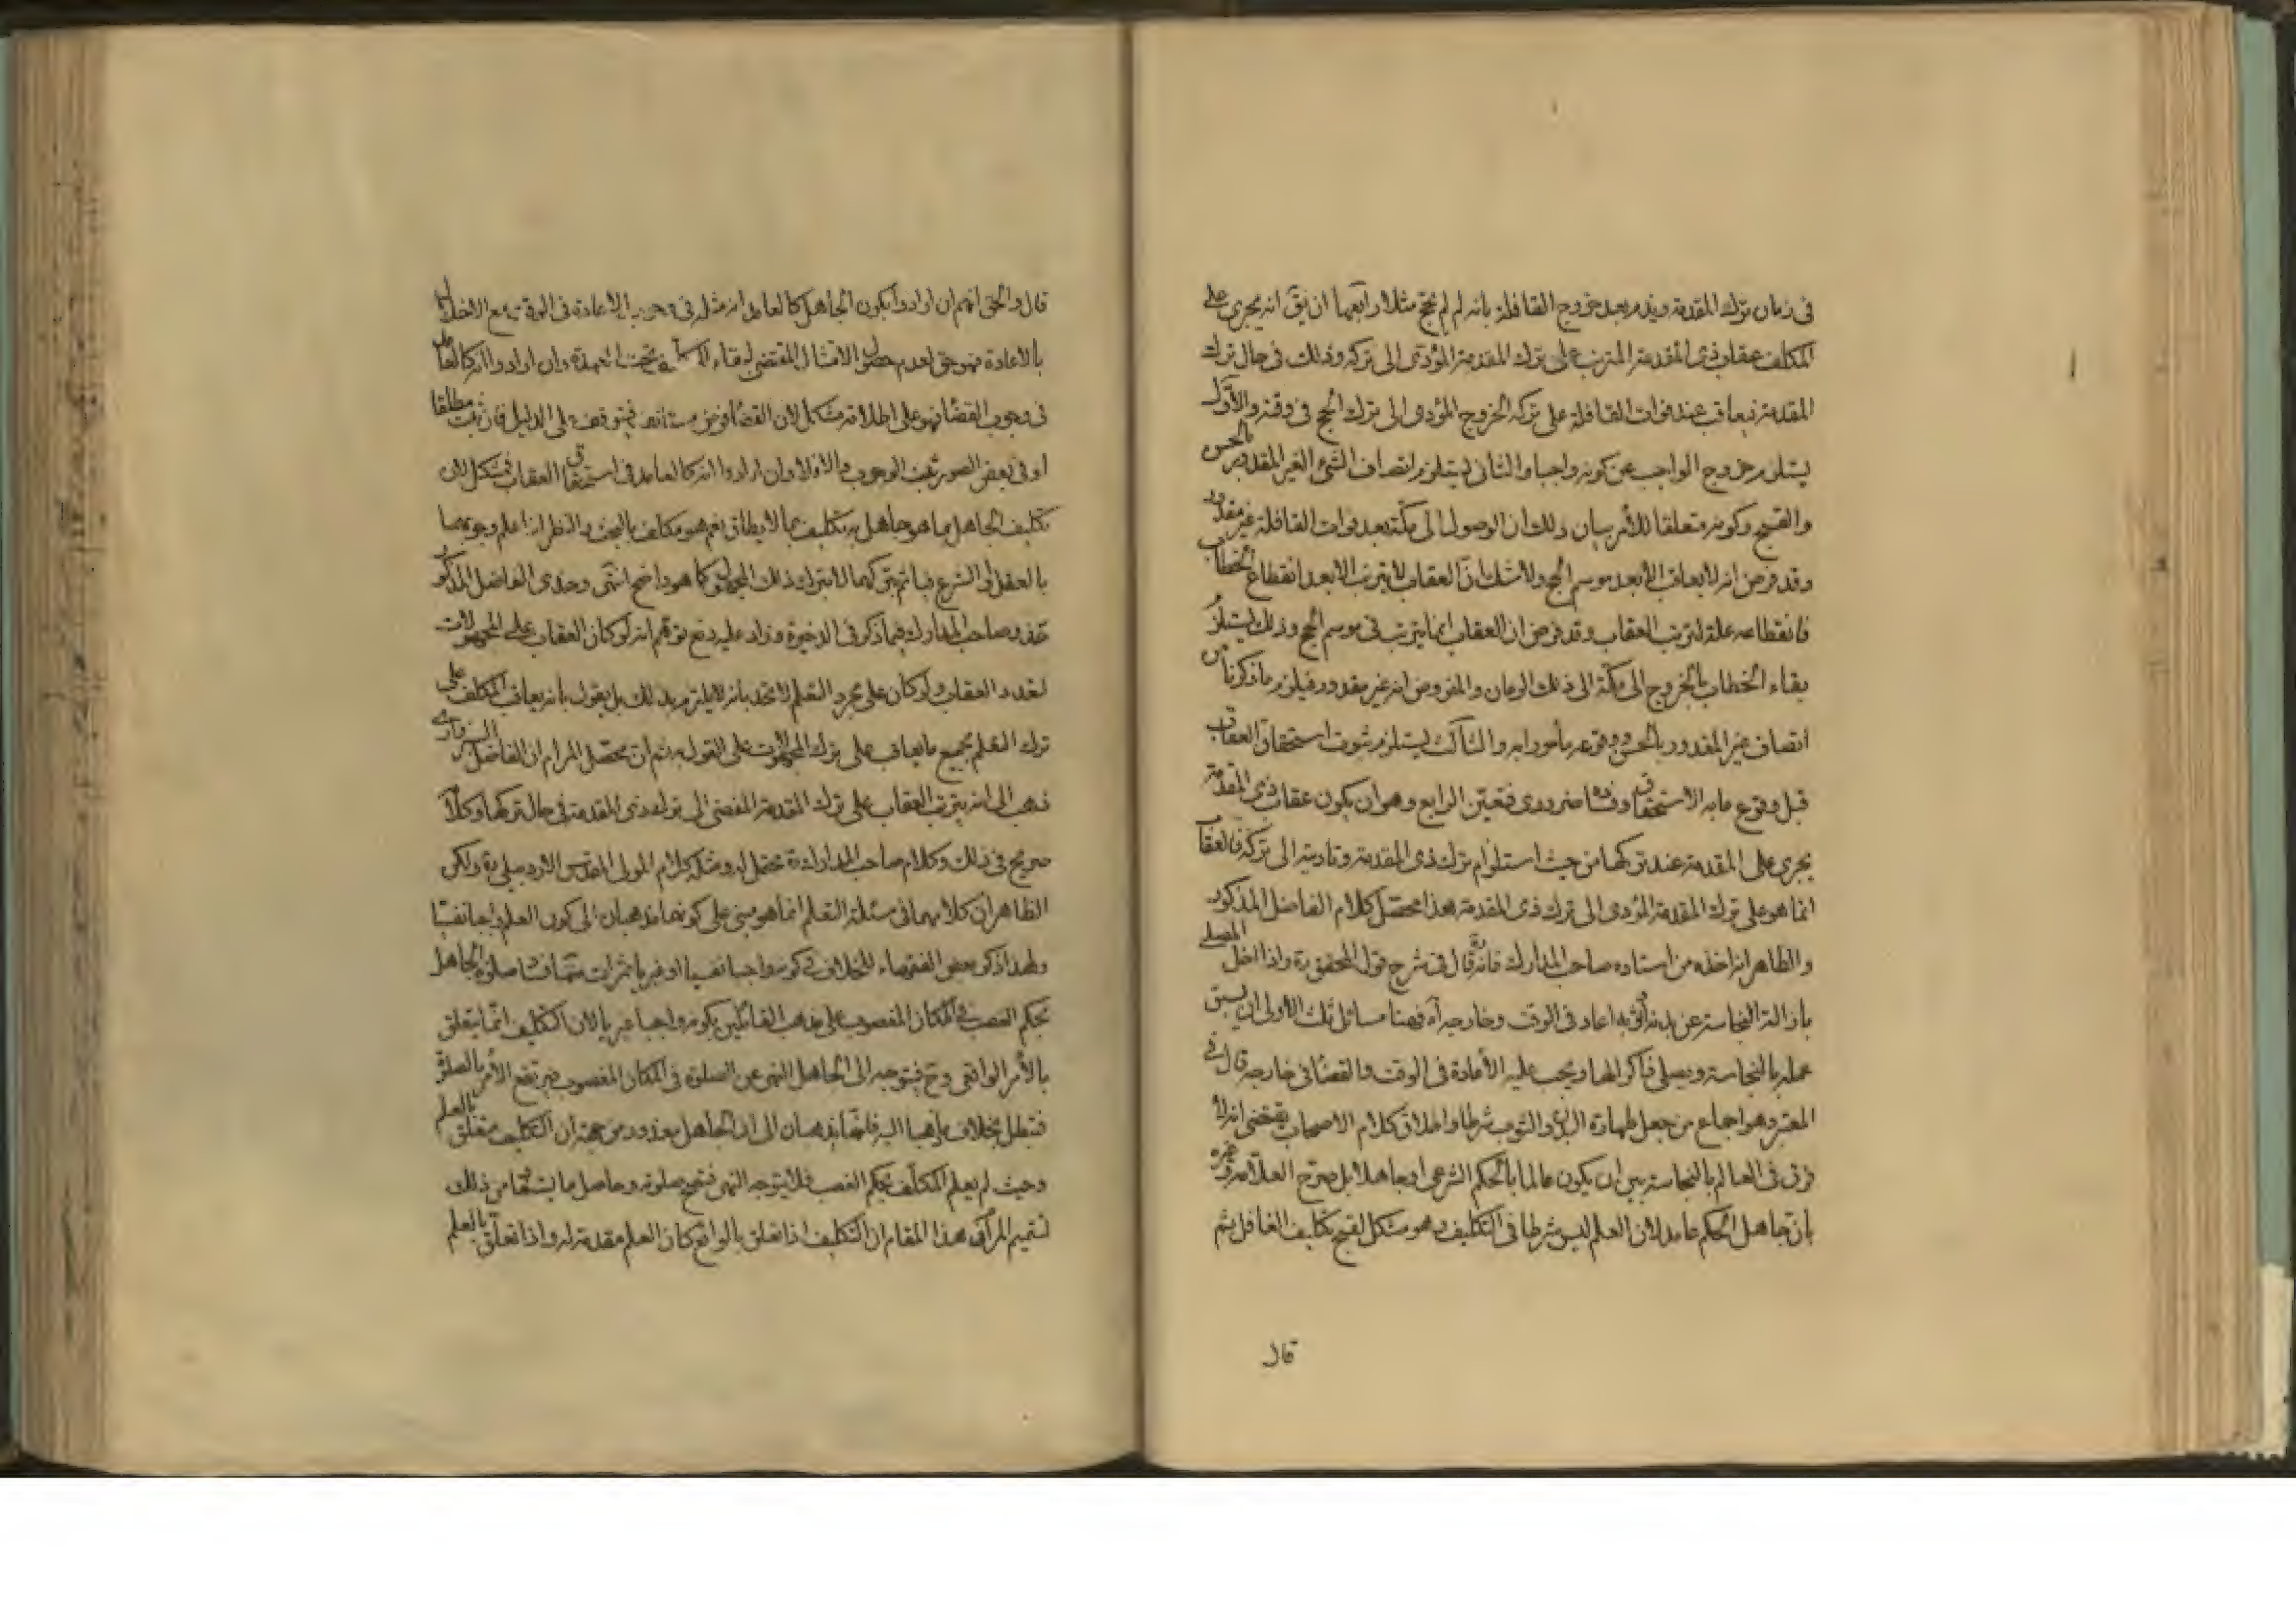 فى زمان ترك المقدمة ويذم بعد خروج القافلة بانه لم لم تحج مثلا ورابعها ان يق انه يجرى على
المكلف عقاب ذى المقدمة المترتب على ترك المقدمة المؤدى الى تركه وذلك فى حال ترك
المقدمة فيعاقب عند فوات القافلة على تركه الخروج المؤدى الى ترك الحج فى وقته والاول
يستلزم خروج الواجب عن كونه واجبا والثانى يستلزم اتصاف الشئ الغير المقدور بالحسن
والقبح وكونه متعلقا للأمر بيان ذلك ان الوصول الى مكة بعد فوات القافلة غير مقدور
وقد فرض انه لا يعاقب الا بعد موسم الحج ولا شك ان العقاب لا يترتب الا بعد انقطاع الخطاب
فانقطاعه علة لترتب العقاب وقد فرض ان العقاب انما يترتب فى موسم الحج وذلك يستلزم
بقاء الخطاب بالخروج الى مكة الى ذلك الزمان والمفروض انه غير مقدور فيلزم ما ذكرنا من
اتصاف غير المقدور بالحسن ووقوعه مأمورا به والثالث يستلزم ثبوت استحقاق العقاب
قبل وقوع ما به الاستحقاق وفساده ضرورى فتعين الرابع وهو ان يكون عقاب ذى المقدمة
يجرى على المقدمة عند تركها من حيث استلزام ترك ذى المقدمة وتاديته الى تركه فالعقاب
انما هو على ترك المقدمة المؤدى الى ترك ذى المقدمة هذا محصل كلام الفاضل المذكور
والظاهر انه اخذه من استاده صاحب المدارك فانه ره قال فى شرح قول المحقق ره واذا اخل المصلى
بازالة النجاسة عن بدنه او ثوبه اعاد فى الوقت وخارجه آه فهنا مسائل ثلث الاولى ان يسبق
عمله بالنجاسة ويصلى ذاكرا لها ويجب عليه الأعادة فى الوقت والقضا فى خارجه قال فى
المعتبر وهو اجماع من جعل طهارة البدن والثوب شرطا واطلاق كلام الاصحاب يقتضى انه لا
فرق فى العالم بالنجاسة بين ان يكون عالما بالحكم الشرعى او جاهلا بل صرح العلامة ره وغيره
بان جاهل الحكم عامد لان العلم ليس شرطا فى التكليف وهو مشكل لقبح تكليف الغافل ثم
قال
قال والحق انهم ان ارادوا بكون الجاهل كالعامد انه مثله فى وجوب الاعادة فى الوقت مع الاخلال
بالاعادة فهو حق لعدم حصول الامتثال المقتضى لبقاء تحت العهدة وان ارادوا انه كالعامد
فى وجوب القضا فهو على اطلاقه مشكل لان القضا فرض مستانف فيتوقف على الدليل فان ثبت مطلقا
او فى بعض الصور ثبت الوجوب والا فلا وان ارادوا انه كالعامد فى استحقاق العقاب فمشكل لان
تكليف الجاهل بما هو جاهل به تكليف بما لا يطاق نعم هو مكلف بالبحث والنظر اذا علم وجوبهما
بالعقل او الشرع فياثم بتركهما لا بترك ذلك المجهول كما هو واضح انتهى وحذى الفاضل المذكور
حذو صاحب المدارك فيما ذكر فى الذخيرة وزاد عليه دفع توهم انه لو كان العقاب على المجهولات
لتعدد العقاب ولو كان على مجرد التعلم لاتحد بانه لا يلتزم بذلك بل يقول بانه يعاقب المكلف على
ترك التعلم بجميع ما يعاقب على ترك المجهولات على القول به ثم ان محصل المرام ان الفاضل السبزوارى
ذهب الى انه يترتب العقاب على ترك المقدمة المفضى الى ترك ذى المقدمة فى حال تركها وكلامه
صريح فى ذلك وكلام صاحب المدارك ره محتمل له ومثله كلام المولى المقدس الاردبيلى ره ولكن
الظاهر ان كلامهما فى مسئلة التعلم انما هو مبنى على كونهما يذهبان الى كون العلم واجبا نفسيا
ولهذا ذكر بعض الفقهاء للخلاف فى كونه واجبا نفسيا او غيريا ثمرات منها فساد صلوة الجاهل
بحكم الغصب فى المكان المغصوب على مذهب القائلين بكونه واجبا غيريا لان التكليف انما يتعلق
بالأمر الواقعى وح فيتوجه الى الجاهل النهى عن الصلوة فى المكان المغصوب فيرتفع الأمر بالصلوة
فتبطل بخلاف ما ذهبا اليه فانهما يذهبان الى ان الجاهل معذور من جهة ان التكليف متعلق بالعلم
وحيث لم يعلم المكلف بحكم الغصب فلا يتوجه النهى فتصح صلوته وحاصل ما يستفاد من ذلك
لتتميم المرام فى هذا المقام ان التكليف اذا تعلق بالواقع كان العلم مقدمة له واذا تعلق بالعلم